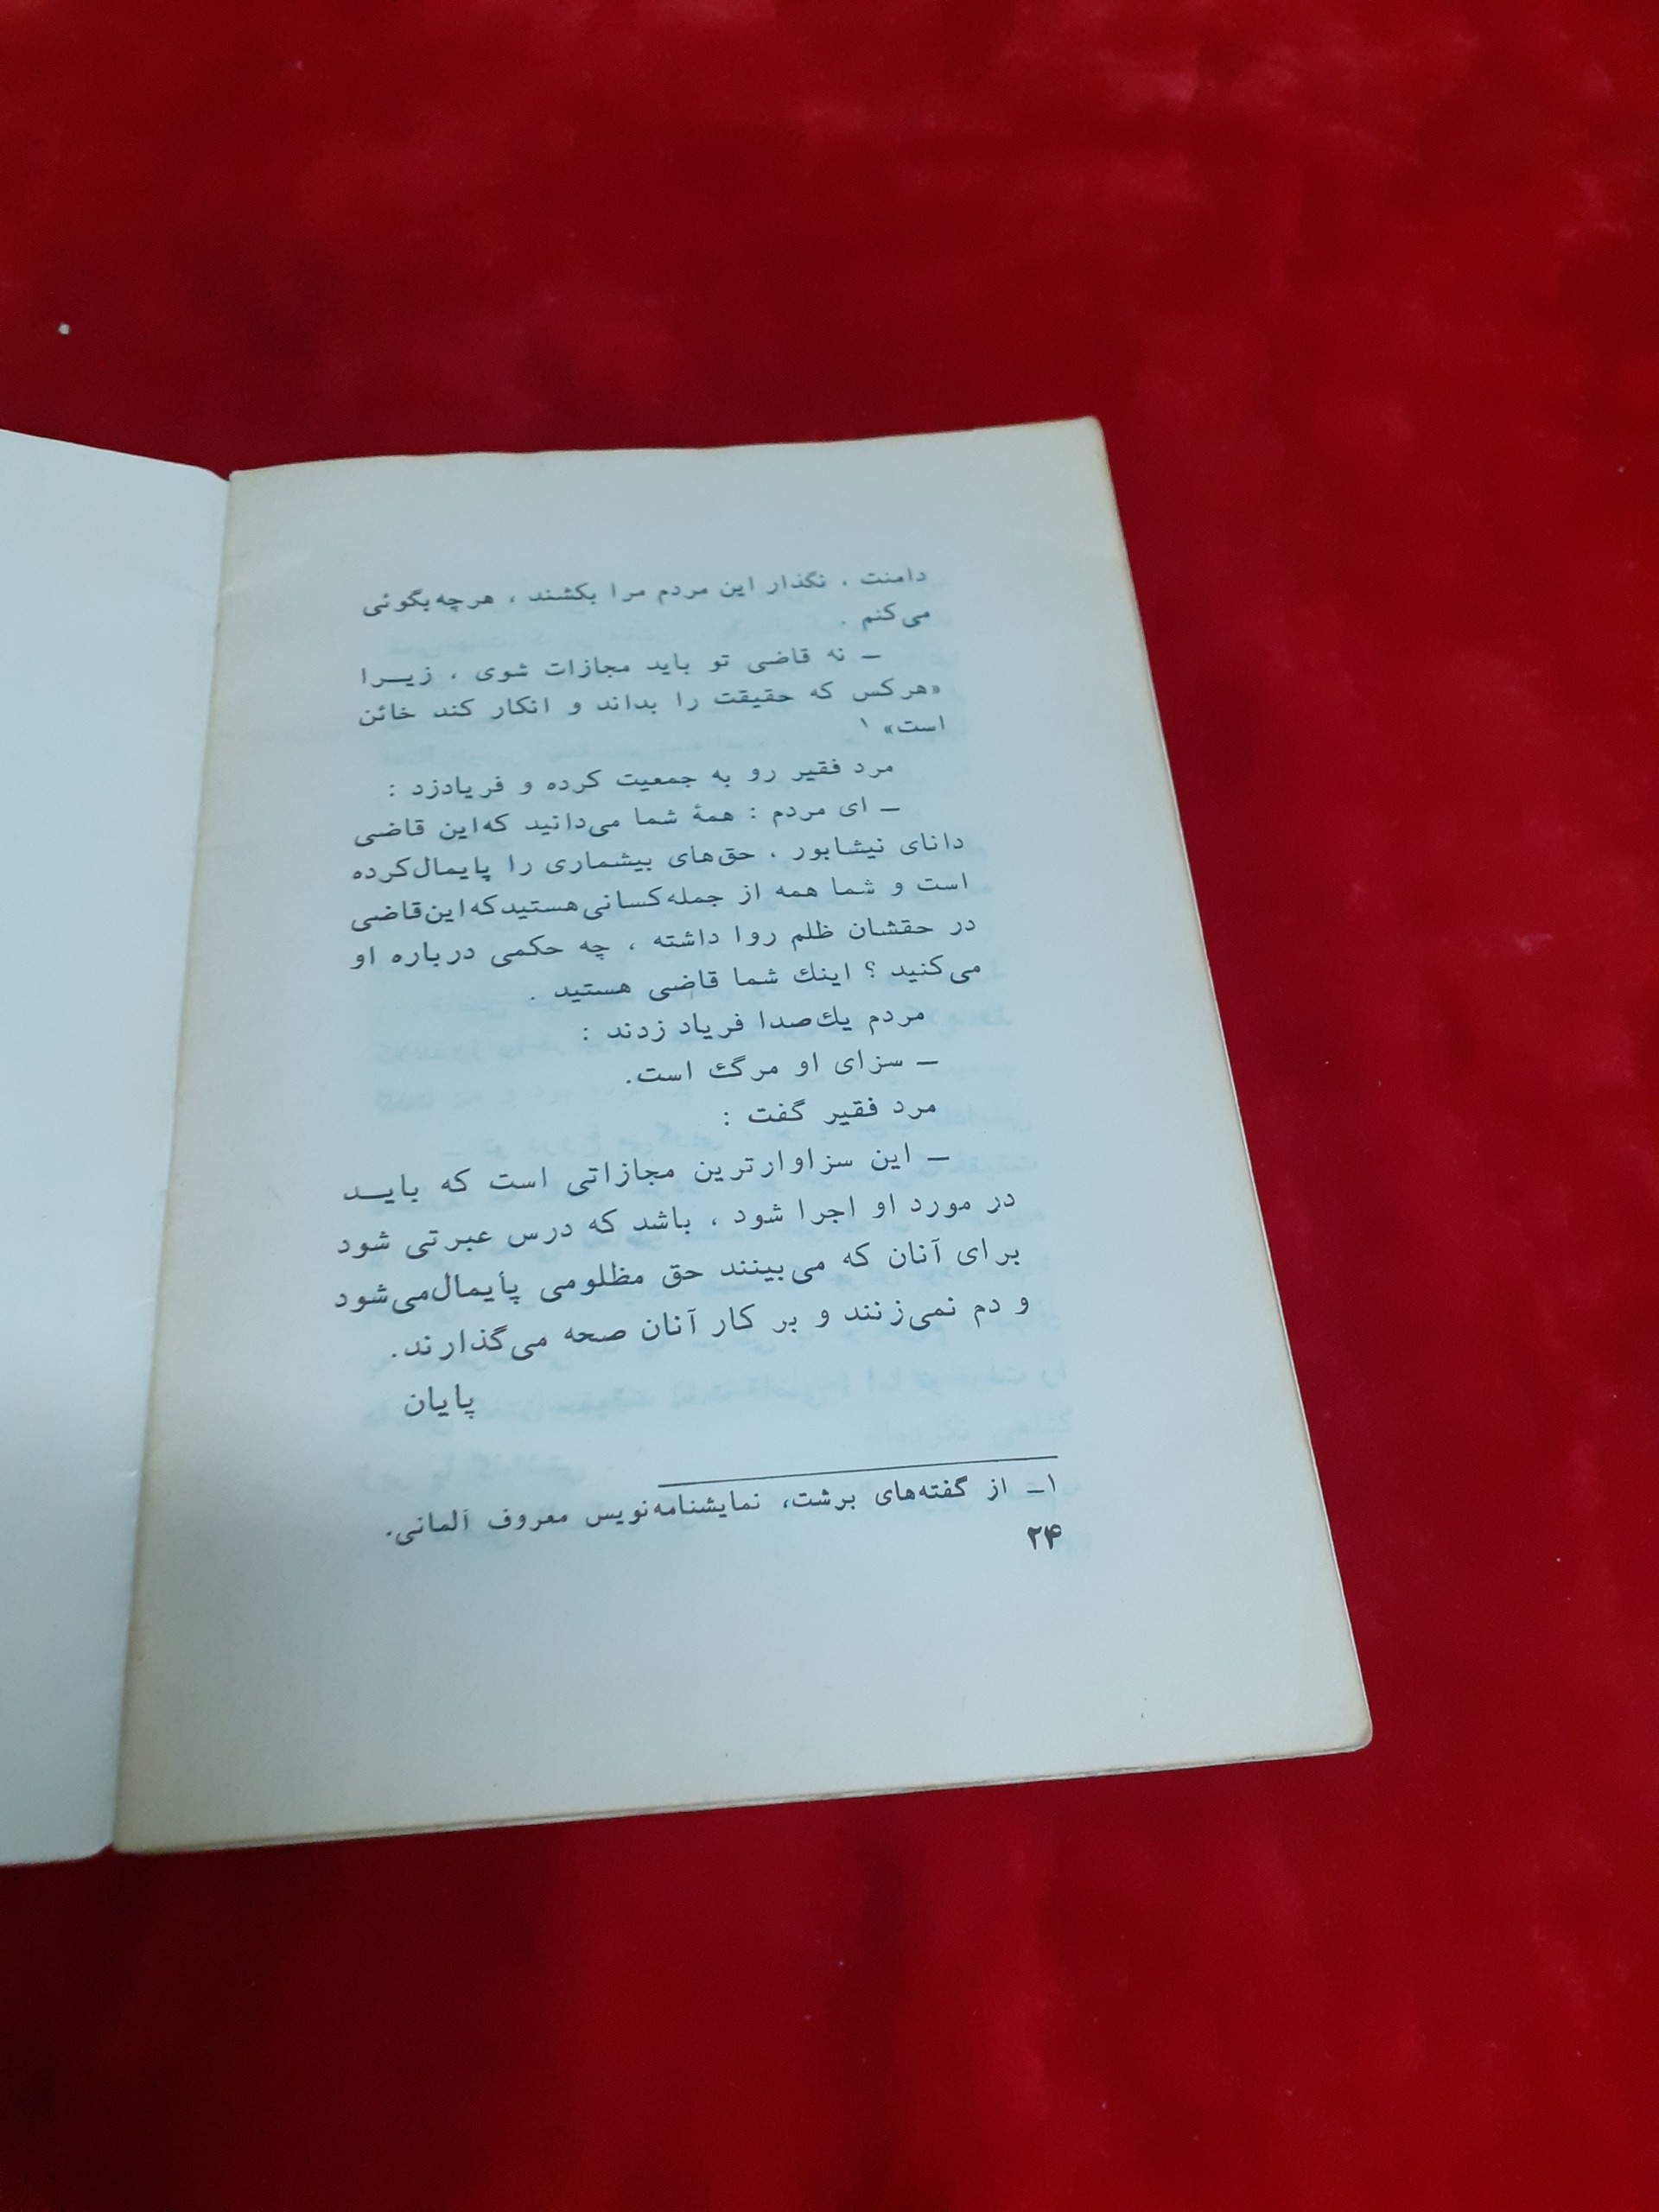 دامنت . نگذار این مردم مرا بکشند ، هرچه‌بگوئی
می‌کنم .
ـ نه قاضی تو باید مجازات شوی ، زیـــرا
«هرکس که حقیقت را بداند و انکار کند خائن
است» ۱
مرد فقیر رو به جمعیت کرده و فریادزد :
ـ ای مردم : همهٔ شما می‌دانید که‌این قاضی
دانای نیشابور ، حق‌های بیشماری را پایمال‌کرده
است و شما همه از جمله‌کسانی‌هستیدکه‌این‌قاضی
در حقشان ظلم روا داشته ، چه حکمی درباره او
می‌کنید ؟ اینك شما قاضی هستید .
مردم یك‌صدا فریاد زدند :
ـ سزای او مرگ است.
مرد فقیر گفت :
ـ این سزاوارترین مجازاتی است که بایـــد
در مورد او اجرا شود ، باشد که درس عبرتی شود
برای آنان که می‌بینند حق مظلومی پأیمال‌می‌شود
و دم نمی‌زنند و بر کار آنان صحه می‌گذارند.
پایان
۱ـ از گفته‌های برشت، نمایشنامه‌نویس معروف آلمانی.
۲۴